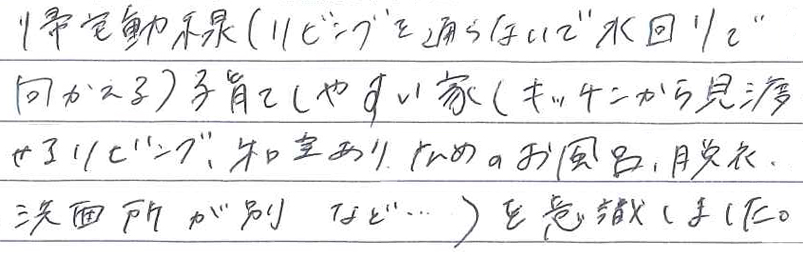 帰宅動線(リビングを通らないで水回りで
向かえる)子育てしやすい家(キッチンから見渡
せるリビング、和室あり、広めのお風呂、脱衣、
洗面所が別 など…)を意識しました。